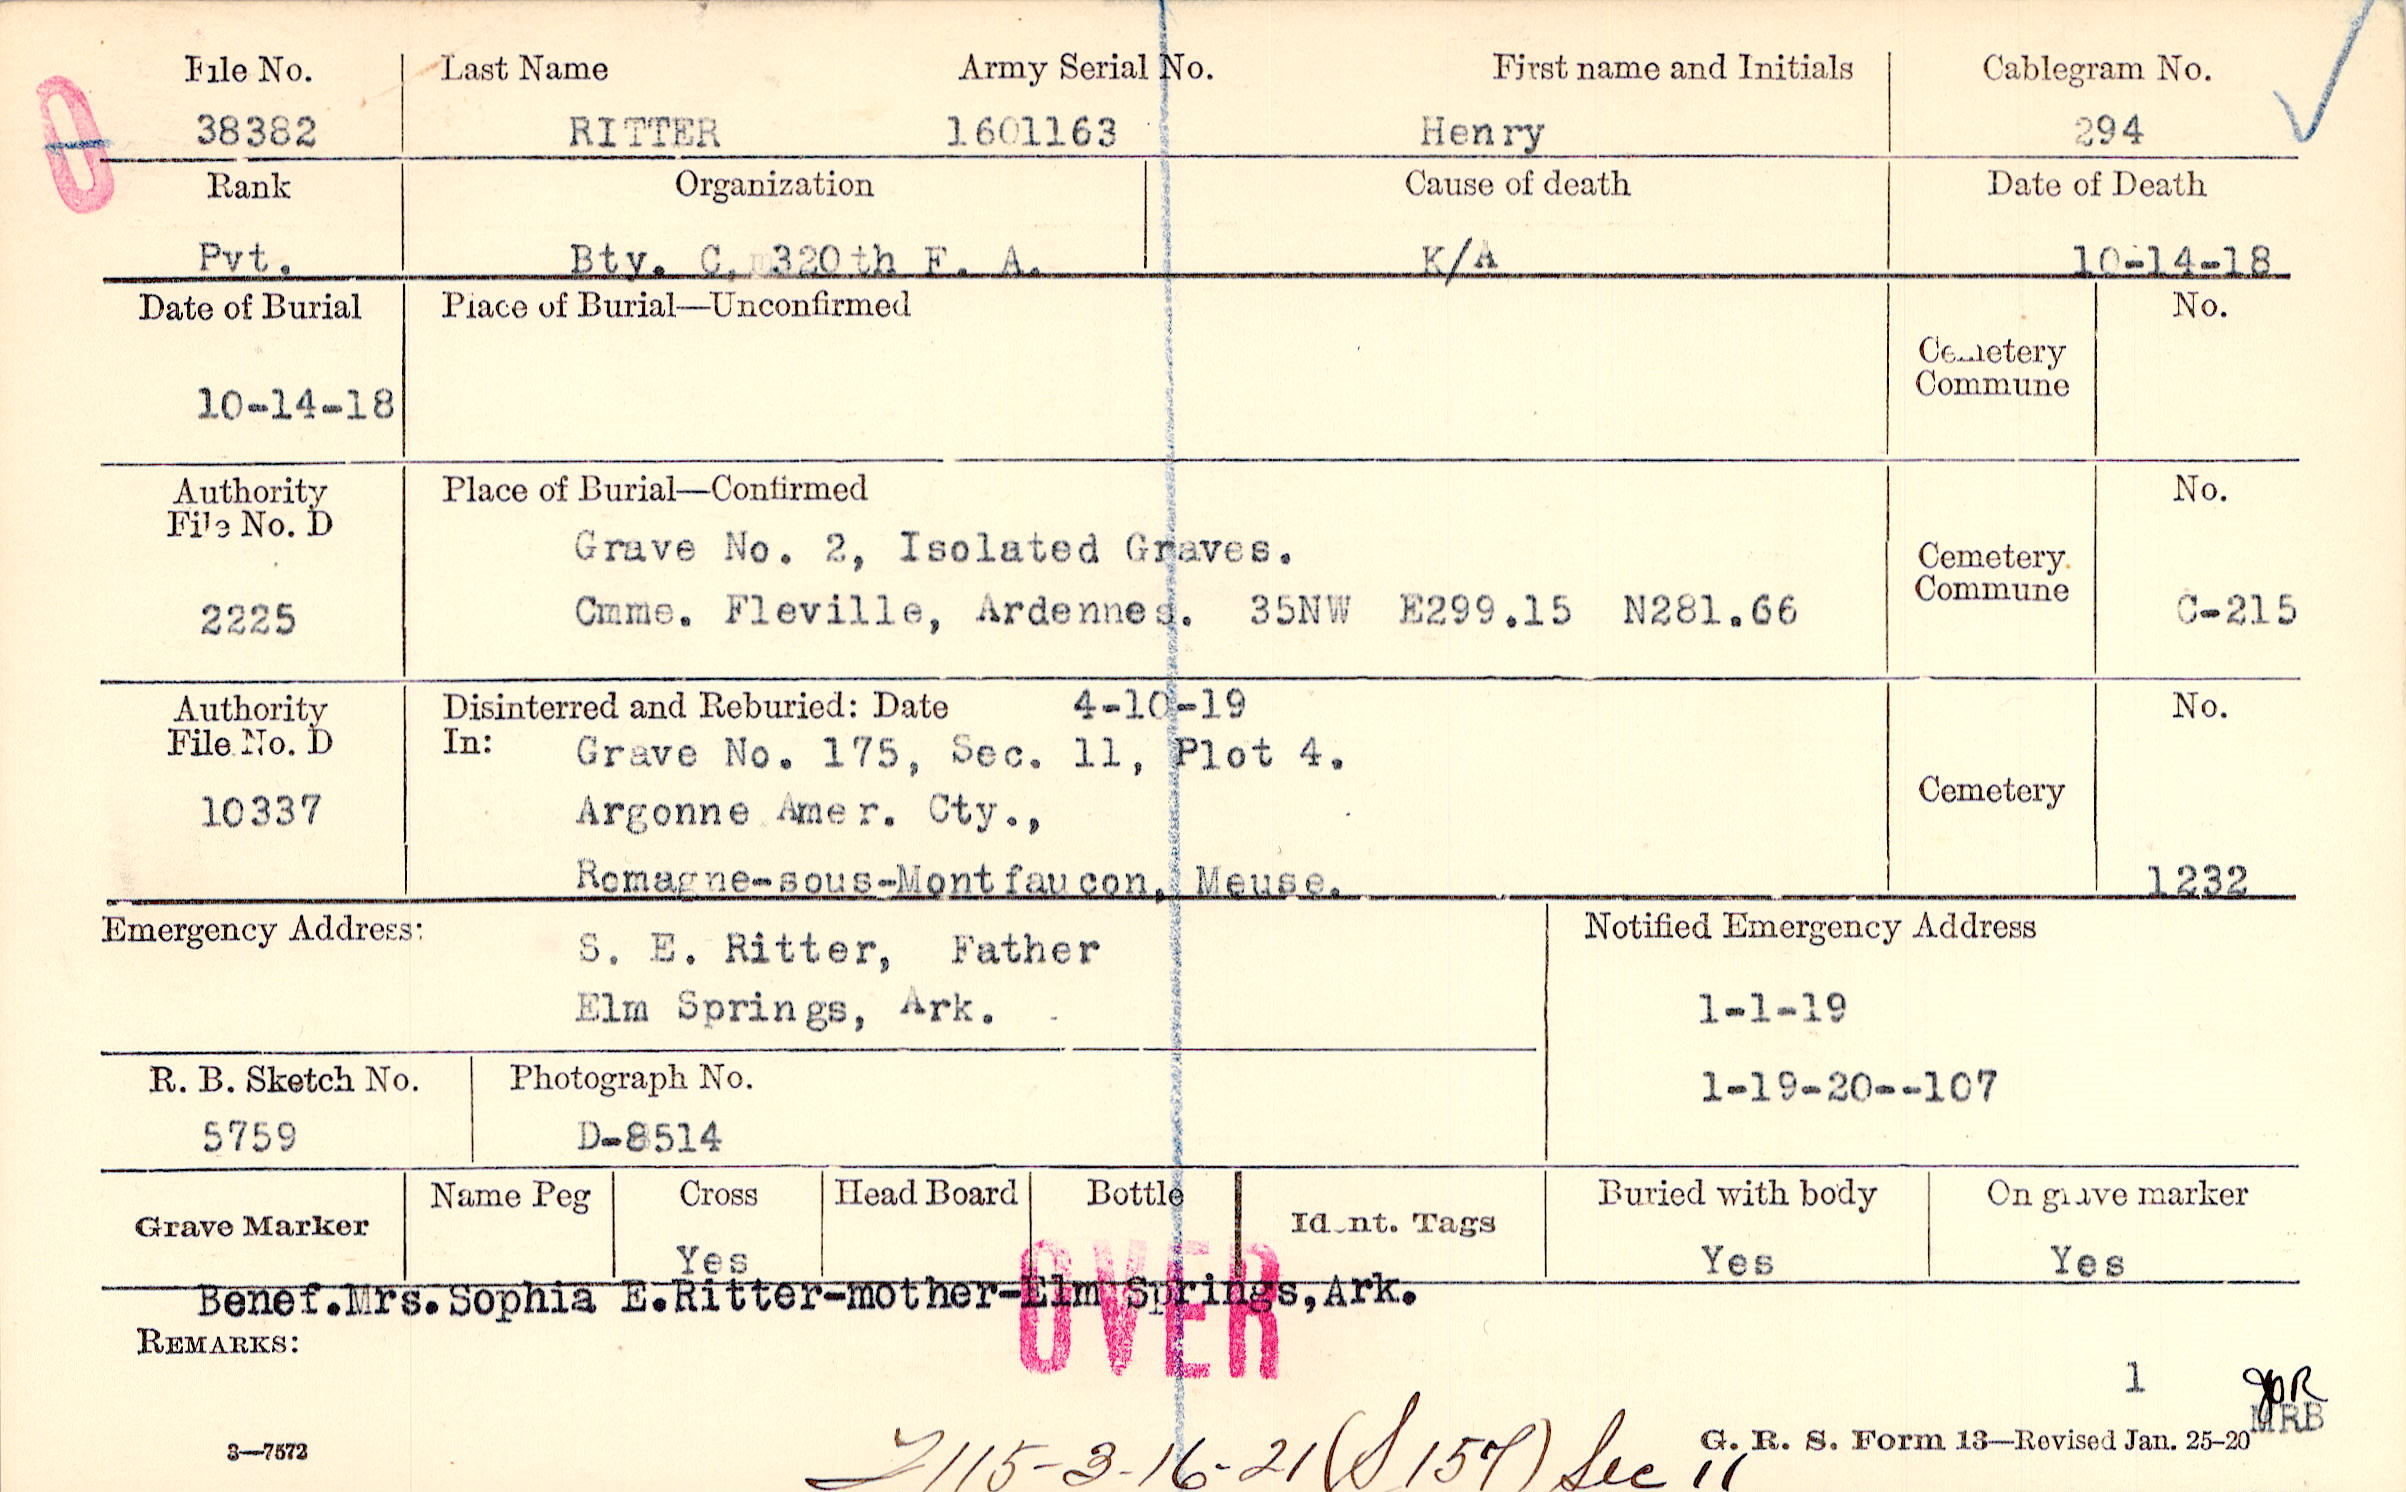 File No. Last Name Army Serial No. First name and Initials Cablegram No.
38382 RITTER 1601163 Henry 294
Rank Organization Cause of death Date of Death
Pvt. Bty. C, 320th F. A. K/A 10-14-18
Date of Burial Place of Burial—Unconfirmed No.
Cemetery
Commune
10-14-18
Authority Place of Burial—Confirmed No.
File No. D
Grave No. 2, Isolated Graves.
Cemetery
Commune
2225 Cmme. Fleville, Ardennes. 35NW E299.15 N281.66 C-215
Authority Disinterred and Reburied: Date 4-10-19 No.
File No. D In: Grave No. 175, Sec. 11, Plot 4.
Cemetery
10337 Argonne Amer. Cty.,
Romagne-sous-Montfaucon, Meuse. 1232
Emergency Address: Notified Emergency Address
S. E. Ritter, Father
Elm Springs, Ark. 1-1-19
R. B. Sketch No. Photograph No. 1-19-20--107
5759 D-8514
Grave Marker Name Peg Cross Head Board Bottle Ident. Tags Buried with body On grave marker
Yes Yes Yes
Benef.Mrs.Sophia E.Ritter-mother-Elm Springs,Ark.
OVER
REMARKS:
1
JPR
MRB
3—7572 G. R. S. Form 13—Revised Jan. 25-20
115-3-16-21 (S 157) Sec 11